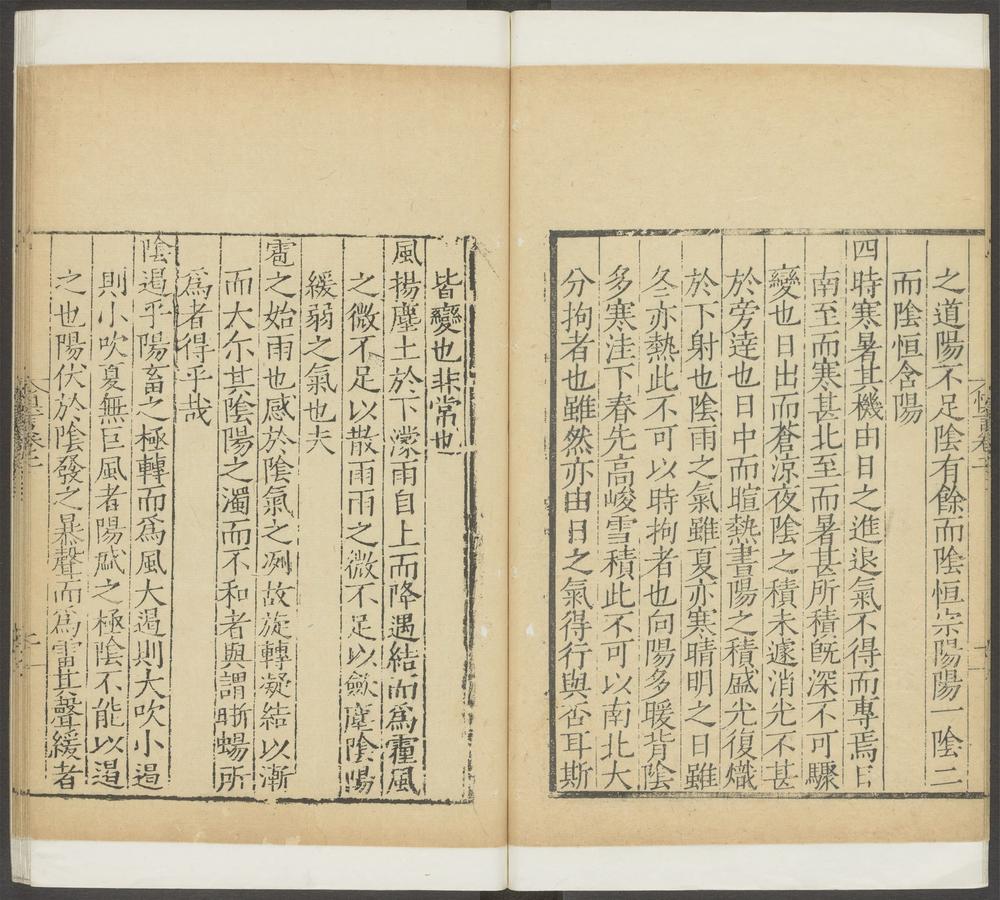 之道陽不足陰有餘而陰恒宗陽陽一陰二
而陰恒含陽
四時寒暑其機由日之進退氣不得而專焉日
南至而寒甚北至而暑甚所積旣深不可驟
變也日出而蒼凉夜陰之積未遽消光不甚
於旁達也日中而暄熱晝陽之積盛光復熾
於下射也陰雨之氣雖夏亦寒晴明之日雖
冬亦熱此不可以時拘者也向陽多暖背陰
多寒洼下春先高峻雪積此不可以南北大
分拘者也雖然亦由日之氣得行與否耳斯
皆變也非常也
風揚塵土於下濛雨自上而降遇結而爲霾風
之微不足以散雨雨之微不足以斂塵陰陽
緩弱之氣也夫
雹之始雨也感於陰氣之冽故旋轉凝結以漸
而大尓其陰陽之濁而不和者與謂晰蝪所
爲者得乎哉
陰遏乎陽畜之極轉而爲風大遏則大吹小遏
則小吹夏無巨風者陽𣣔之極陰不能以遏
之也陽伏於陰發之暴聲而爲雷其聲緩者